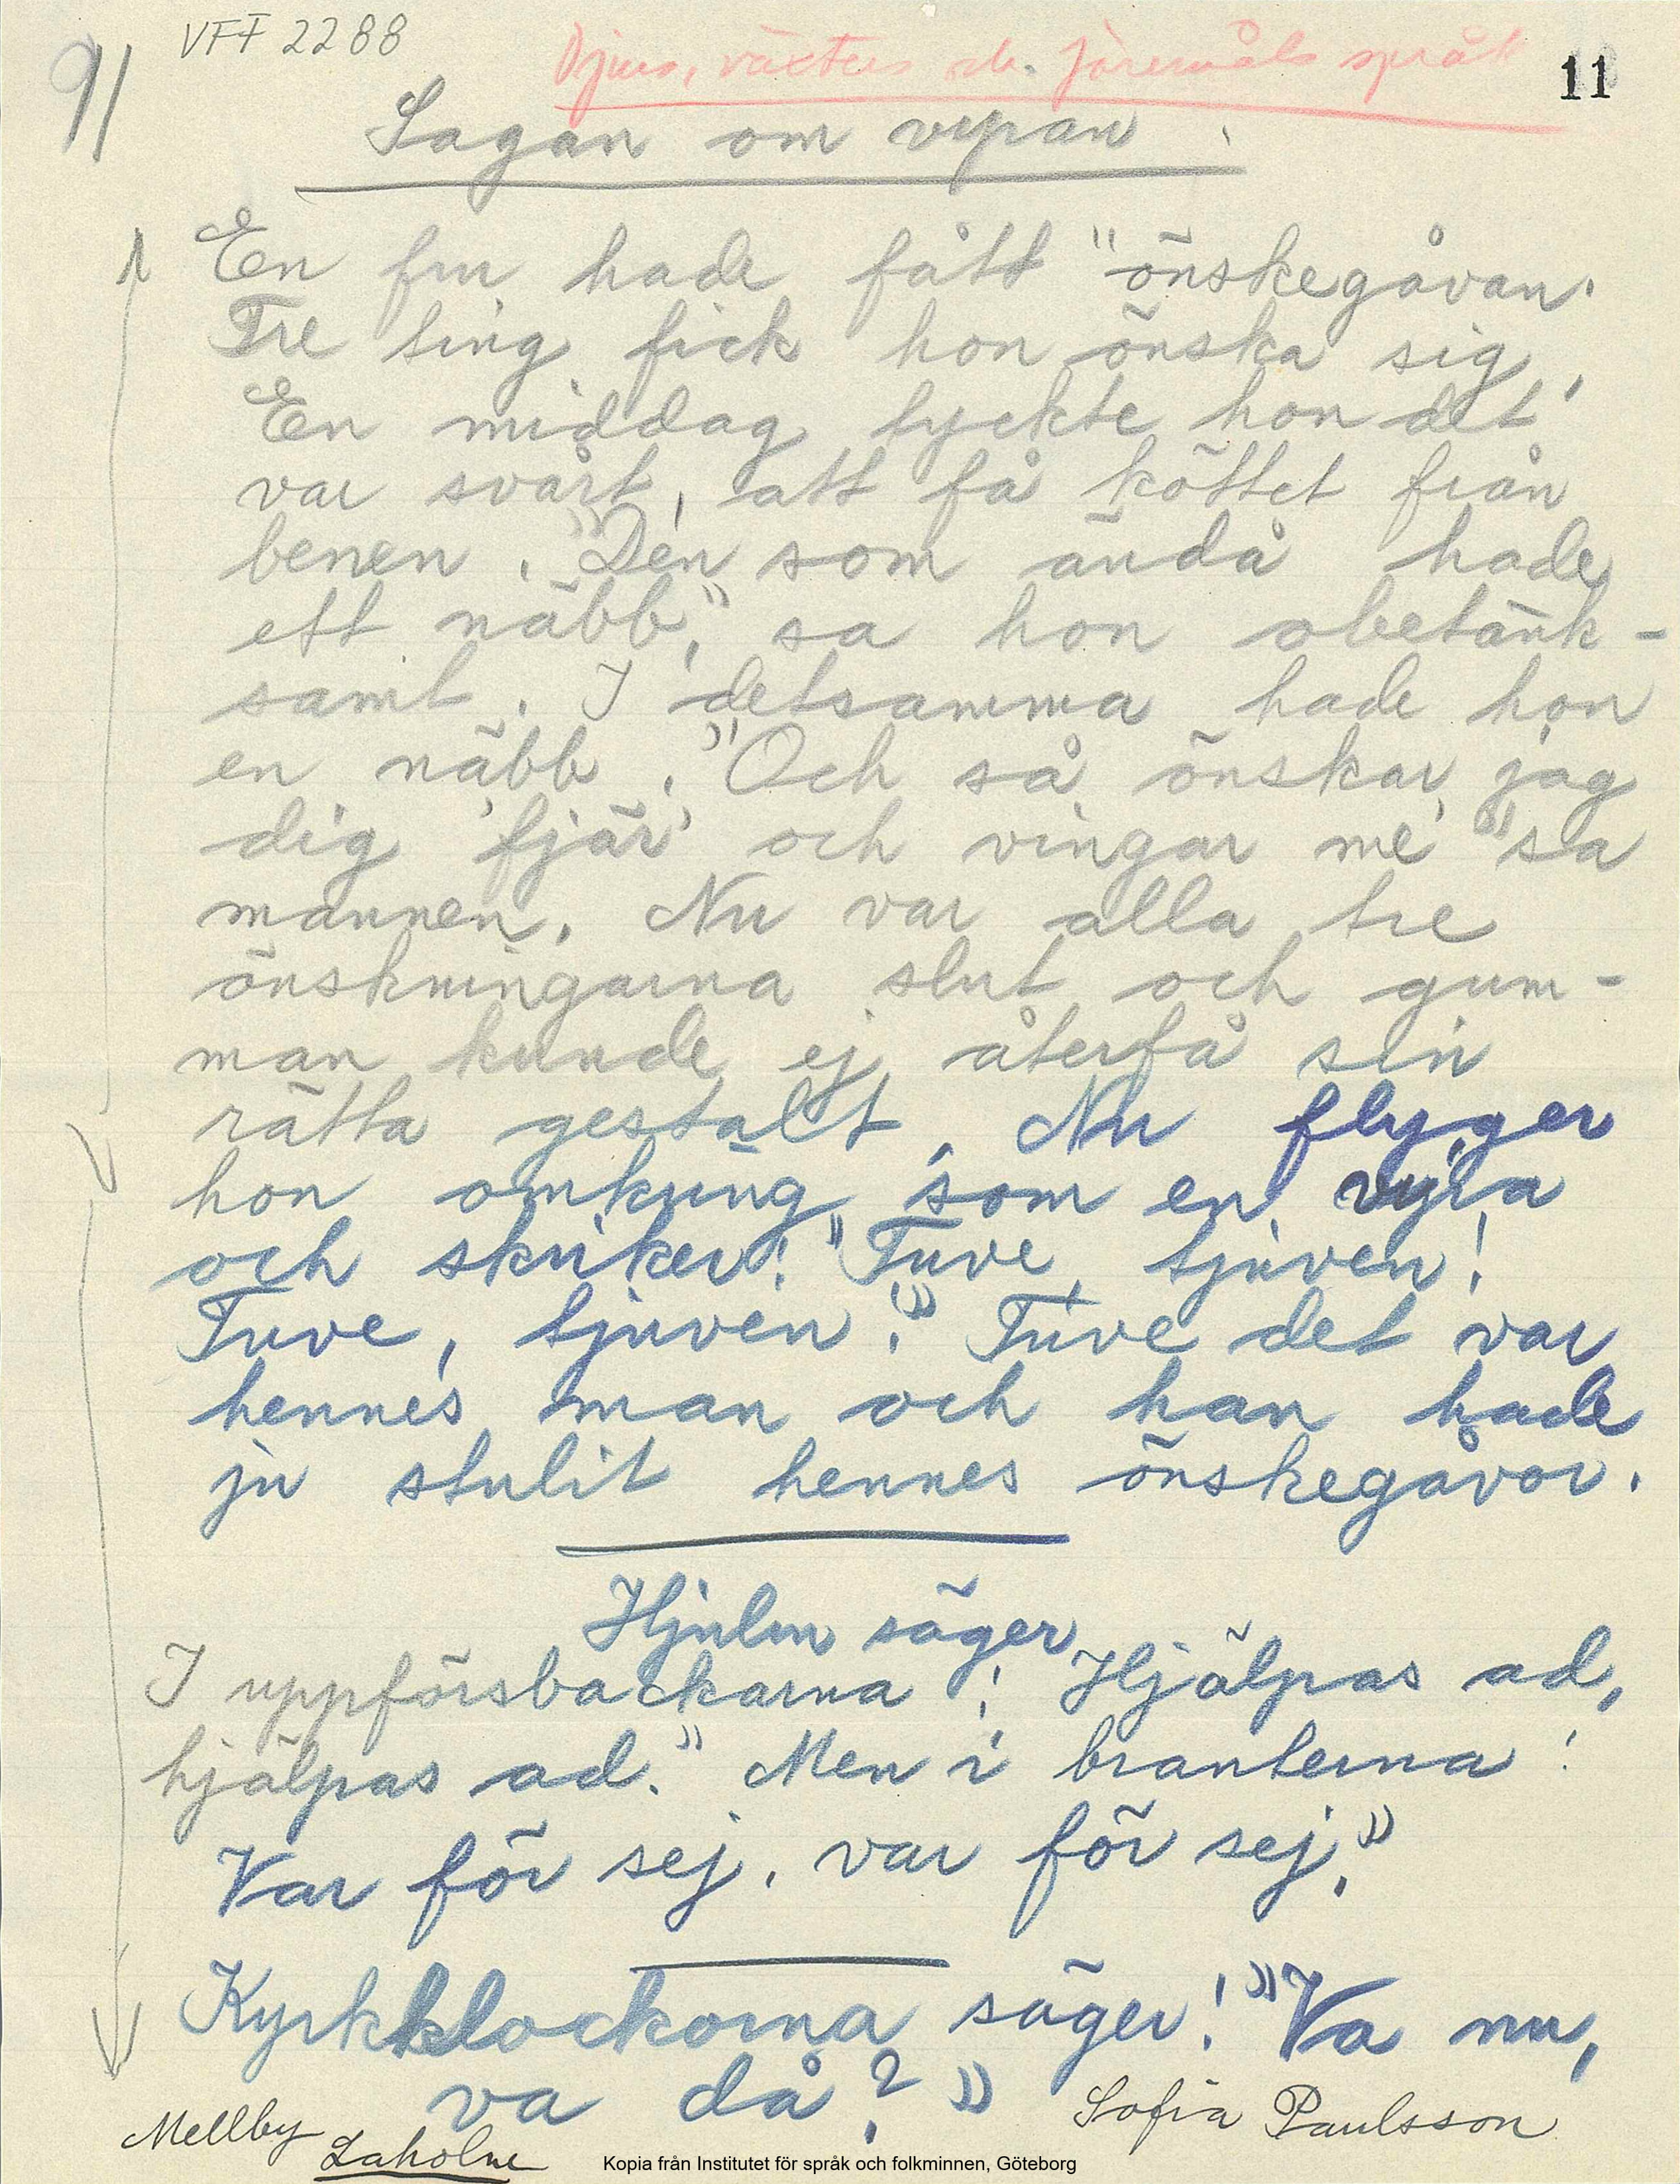 91
VFF 2288
Djurs, växters och föremåls språk
11
Sagan om vipan.
En fru hade fått "önskegåvan.
Tre ting fick hon önska sig.
En middag tyckte hon det
var svårt, att få köttet från
benen. "Den som ändå hade
ett näbb," sa hon obetänk-
samt. I detsamma hade hon
en näbb. "Och så önskar jag
dig 'fjär' och vingar me'" sa
mannen. Nu var alla tre
önskningarna slut och gum-
man kunde ej återfå sin
rätta gestalt. Nu flyger
hon omkring som en vipa
och skriker: "Tuve, tjuven!
Tuve, tjuven!" Tuve det var
hennes man och han hade
ju stulit hennes önskegåvor.
Hjulen säger
I uppförsbackarna: Hjälpas ad,
hjälpas ad." Men i branterna:
Var för sej, var för sej."
Kyrkklockorna säger: "Va nu,
va då?"
Sofia Paulsson
Mellby
Laholm
Kopia från Institutet för språk och folkminnen, Göteborg